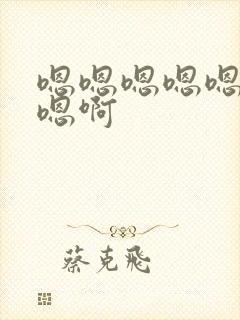 嗯嗯嗯嗯嗯
嗯啊
蔡克飛